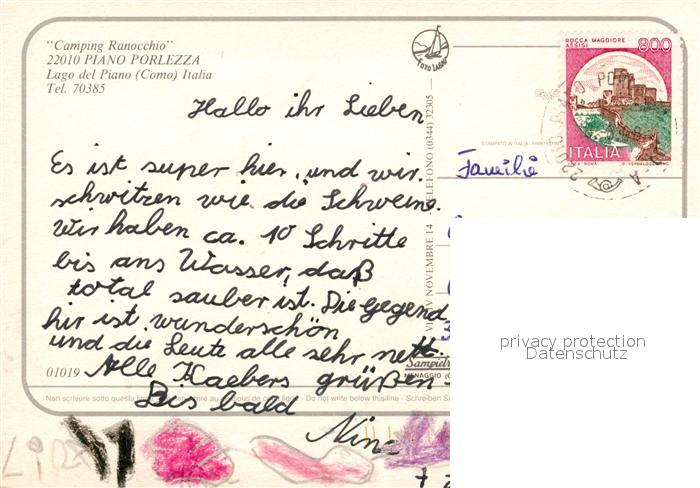 "Camping Ranocchio"
22010 PIANO PORLEZZA
Lago del Piano (Como) Italia
Tel. 70385
FOTO LAGO
ROCCA MAGGIORE
ASSISI
800
ITALIA
STAMPATO IN ITALIA
Hallo ihr Lieben
Es ist super hier, und wir
schwitzen wie die Schweine.
Wir haben ca. 10 Schritte
bis ans Wasser, daß
total sauber ist. Die Gegend
hir ist wunderschön
und die Leute alle sehr nett.
Alle Kaebers grüßen
Bis bald
Nin
Familie
VIA IV NOVEMBRE 14 - TELEFONO (0344) 32305
MENAGGIO
01019
Non scrivere sotto questa - Do not write below this line - Schreiben
privacy protection
Datenschutz